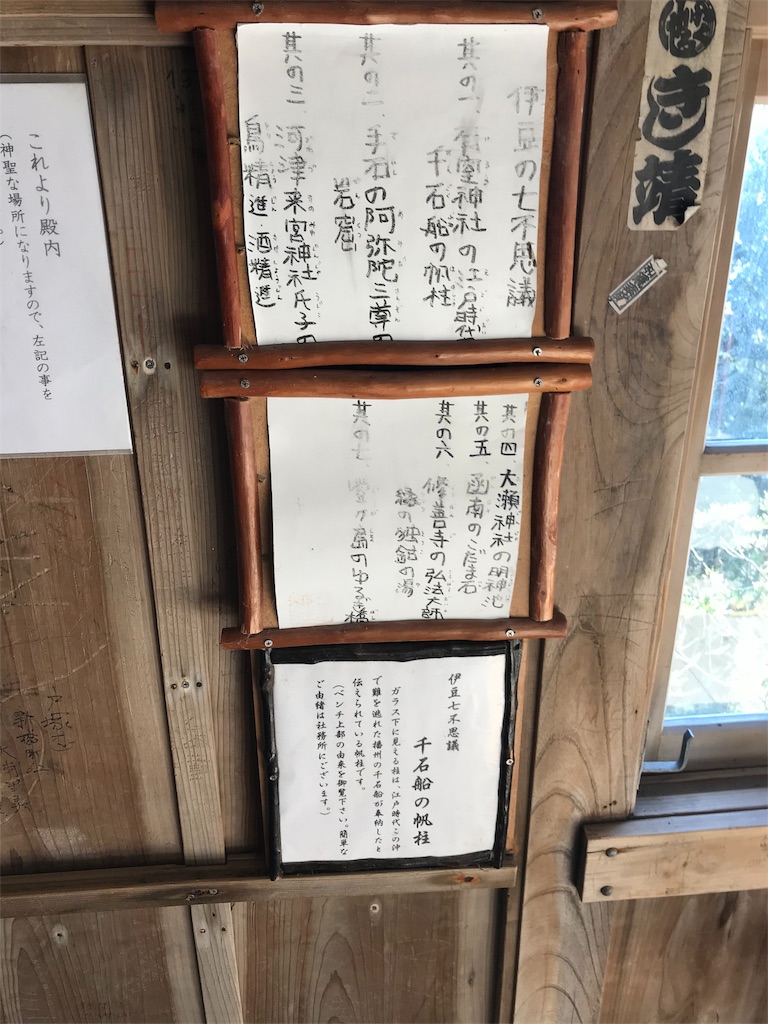 伊豆の七不思議
其の一 石室神社の江戸時代
千石船の帆柱
其の二 手石の阿弥陀三尊の
岩窟
其の三 河津来宮神社氏子の
鳥精進・酒精進
其の四 大瀬神社の明神池
其の五 函南のこだま石
其の六 修善寺の弘法大師
縁の独鈷の湯
其の七 堂ヶ島のゆるぎ橋
伊豆七不思議
千石船の帆柱
ガラス下に見える柱は、江戸時代この沖
で難を逃れた播州の千石船が奉納したと
伝えられている帆柱です。
(ベンチ上部の由来を御覧下さい。簡単な
ご由緒は社務所にございます。)
これより殿内
(神聖な場所になりますので、左記の事を